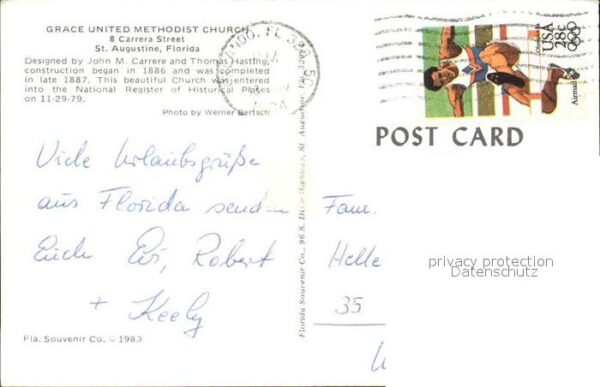 GRACE UNITED METHODIST CHURCH
8 Carrera Street
St. Augustine, Florida
Designed by John M. Carrere and Thomas Hasting,
construction began in 1886 and was completed
in late 1887. This beautiful Church was entered
into the National Register of Historical Places
on 11-29-79.
Photo by Werner Bertsch
Viele Urlaubsgrüße
aus Florida senden
Euch Evi, Robert
+ Keely
Fla. Souvenir Co. © 1983
Florida Souvenir Co., 96 S. Dixie Highway, St. Augustine, Fla.
FL 328
USA
28c
Airmail
POST CARD
Fam.
Helle
35
privacy protection
Datenschutz